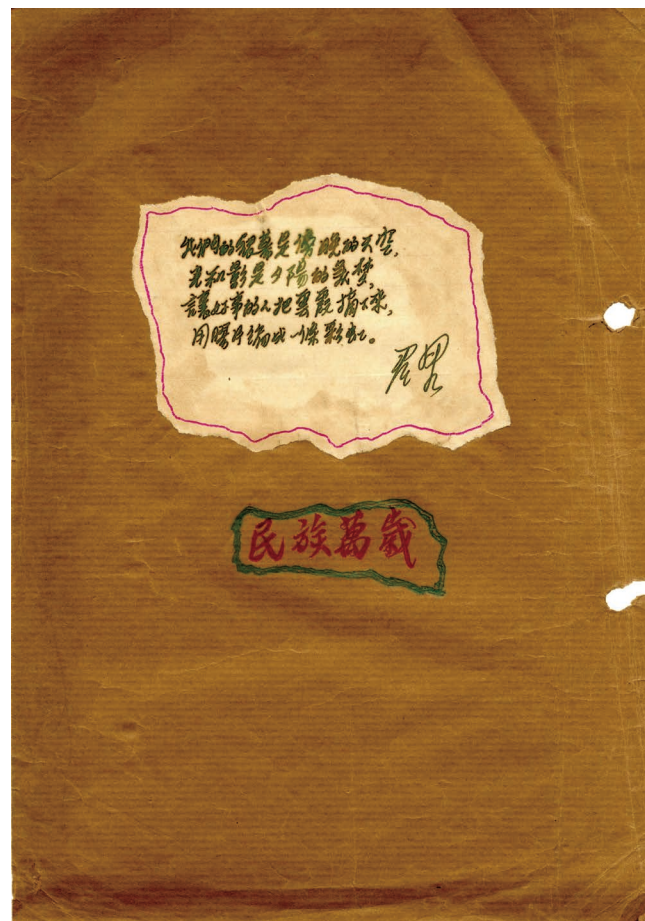 他們的銀幕是傍晚的天空,
光和影是夕陽的氣焚,
讓好事的人把雲霞摘下來,
用曙片編成一條彩虹。
民族萬歲